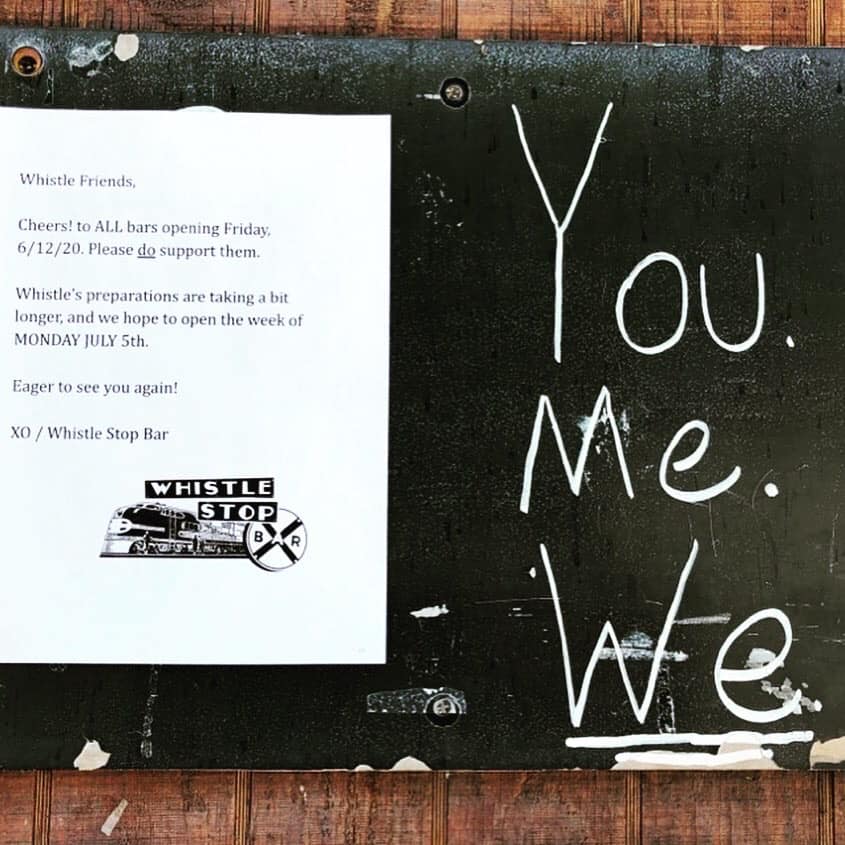 Whistle Friends,
Cheers! to ALL bars opening Friday,
6/12/20. Please do support them.
Whistle's preparations are taking a bit
longer, and we hope to open the week of
MONDAY JULY 5th.
Eager to see you again!
XO / Whistle Stop Bar
WHISTLE
STOP
B A R
You.
Me.
We.